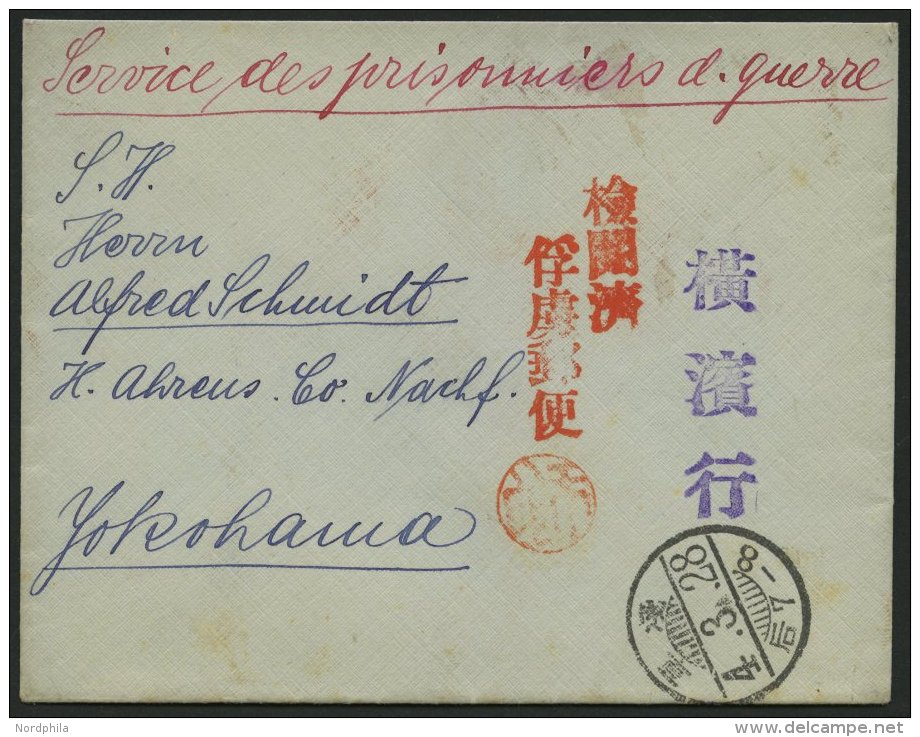 Service des prisonniers d. guerre
S. H.
Herrn
Alfred Schmidt
H. Ahrens. Co. Nachf.
Yokohama
檢閲濟
俘虜郵便
横濱行
4.3.28
后 7-8
Nordphila
delcampe.net